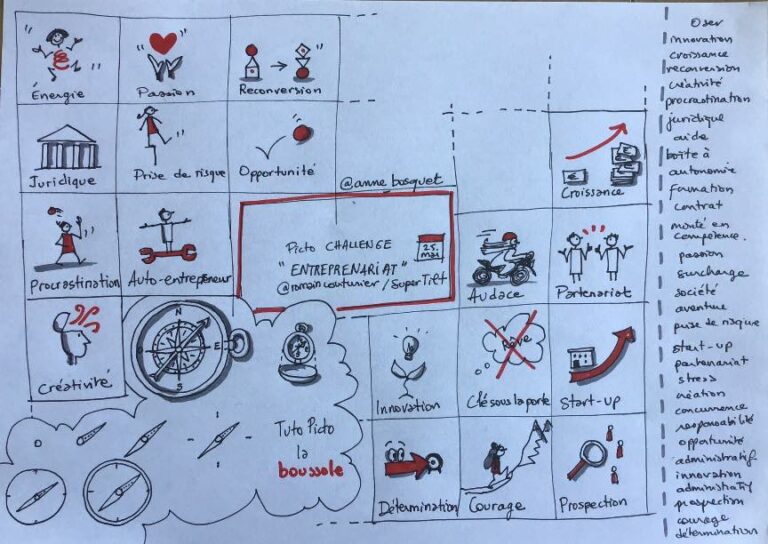 Énergie
Passion
Reconversion
Juridique
Prise de risque
Opportunité
@anne bosquet
Croissance
Procrastination
Auto-entrepreneur
Picto CHALLENGE
25 mai
"ENTREPRENARIAT"
@romaincouturier / SuperTilt
Audace
Partenariat
Créativité
N
E
S
Innovation
Rêve
Clé sous la porte
Start-up
Tuto Picto
la
boussole
Détermination
Courage
Prospection
Oser
innovation
croissance
reconversion
créativité
procrastination
juridique
aide
boîte à
autonomie
Formation
contrat
monté en
compétence.
passion
surcharge
société
aventure
prise de risque
start-up
partenariat
stress
création
concurrence
responsabilité
opportunité
administratif
innovation
administratif
prospection
courage
détermination